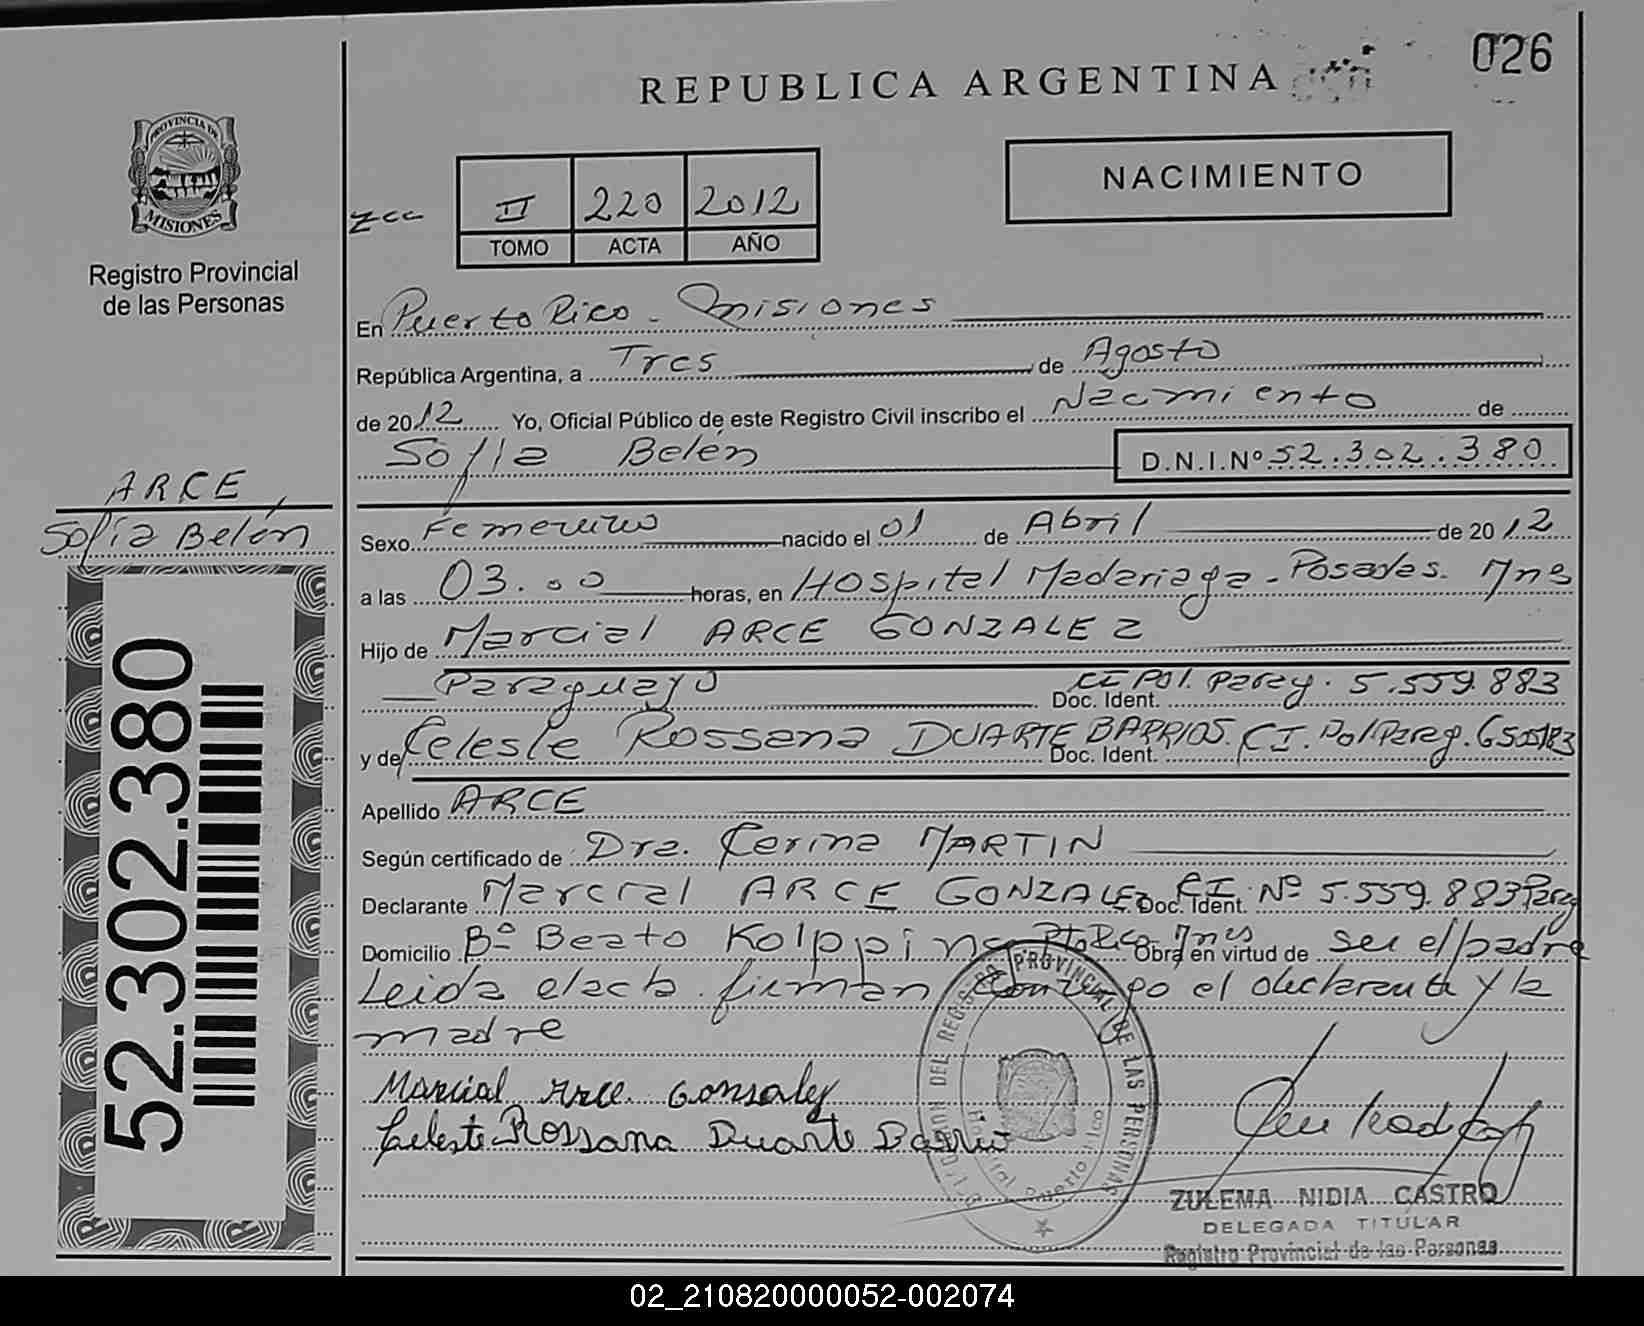 026
REPUBLICA ARGENTINA
PROVINCIA DE
MISIONES
Registro Provincial
de las Personas
II 220 2012
TOMO ACTA AÑO
NACIMIENTO
En Puerto Rico - Misiones
República Argentina, a Tres de Agosto
de 2012 Yo, Oficial Público de este Registro Civil inscribo el Nacimiento de
Sofía Belén D.N.I.Nº 52.302.380
ARCE,
Sofía Belén
Sexo Femenino nacido el 01 de Abril de 2012
a las 03.00 horas, en Hospital Madariaga - Posadas. Mnes
Hijo de Marcial ARCE GONZALEZ
Paraguayo Doc. Ident. CI Pol. Parag. 5.559.883
y de Celeste Rossana DUARTE BARRIOS. Doc. Ident. CI. Pol Parag.
Apellido ARCE
Según certificado de Dra. Carina MARTIN
Declarante Marcial ARCE GONZALEZ Doc. Ident. CI. Nº 5.559.883 Parag
Domicilio Bº Beato Kolpping Pto Rico Mnes Obra en virtud de ser el padre
Leida el acta firman conmigo el declarante y la
madre
Marcial Arce Gonsalez
Celeste Rossana Duarte Barrio
52.302.380
DEL REGISTRO PROVINCIAL DE LAS PERSONAS
Hospital Puerto Rico
ZULEMA NIDIA CASTRO
DELEGADA TITULAR
Registro Provincial de las Personas
02_210820000052-002074